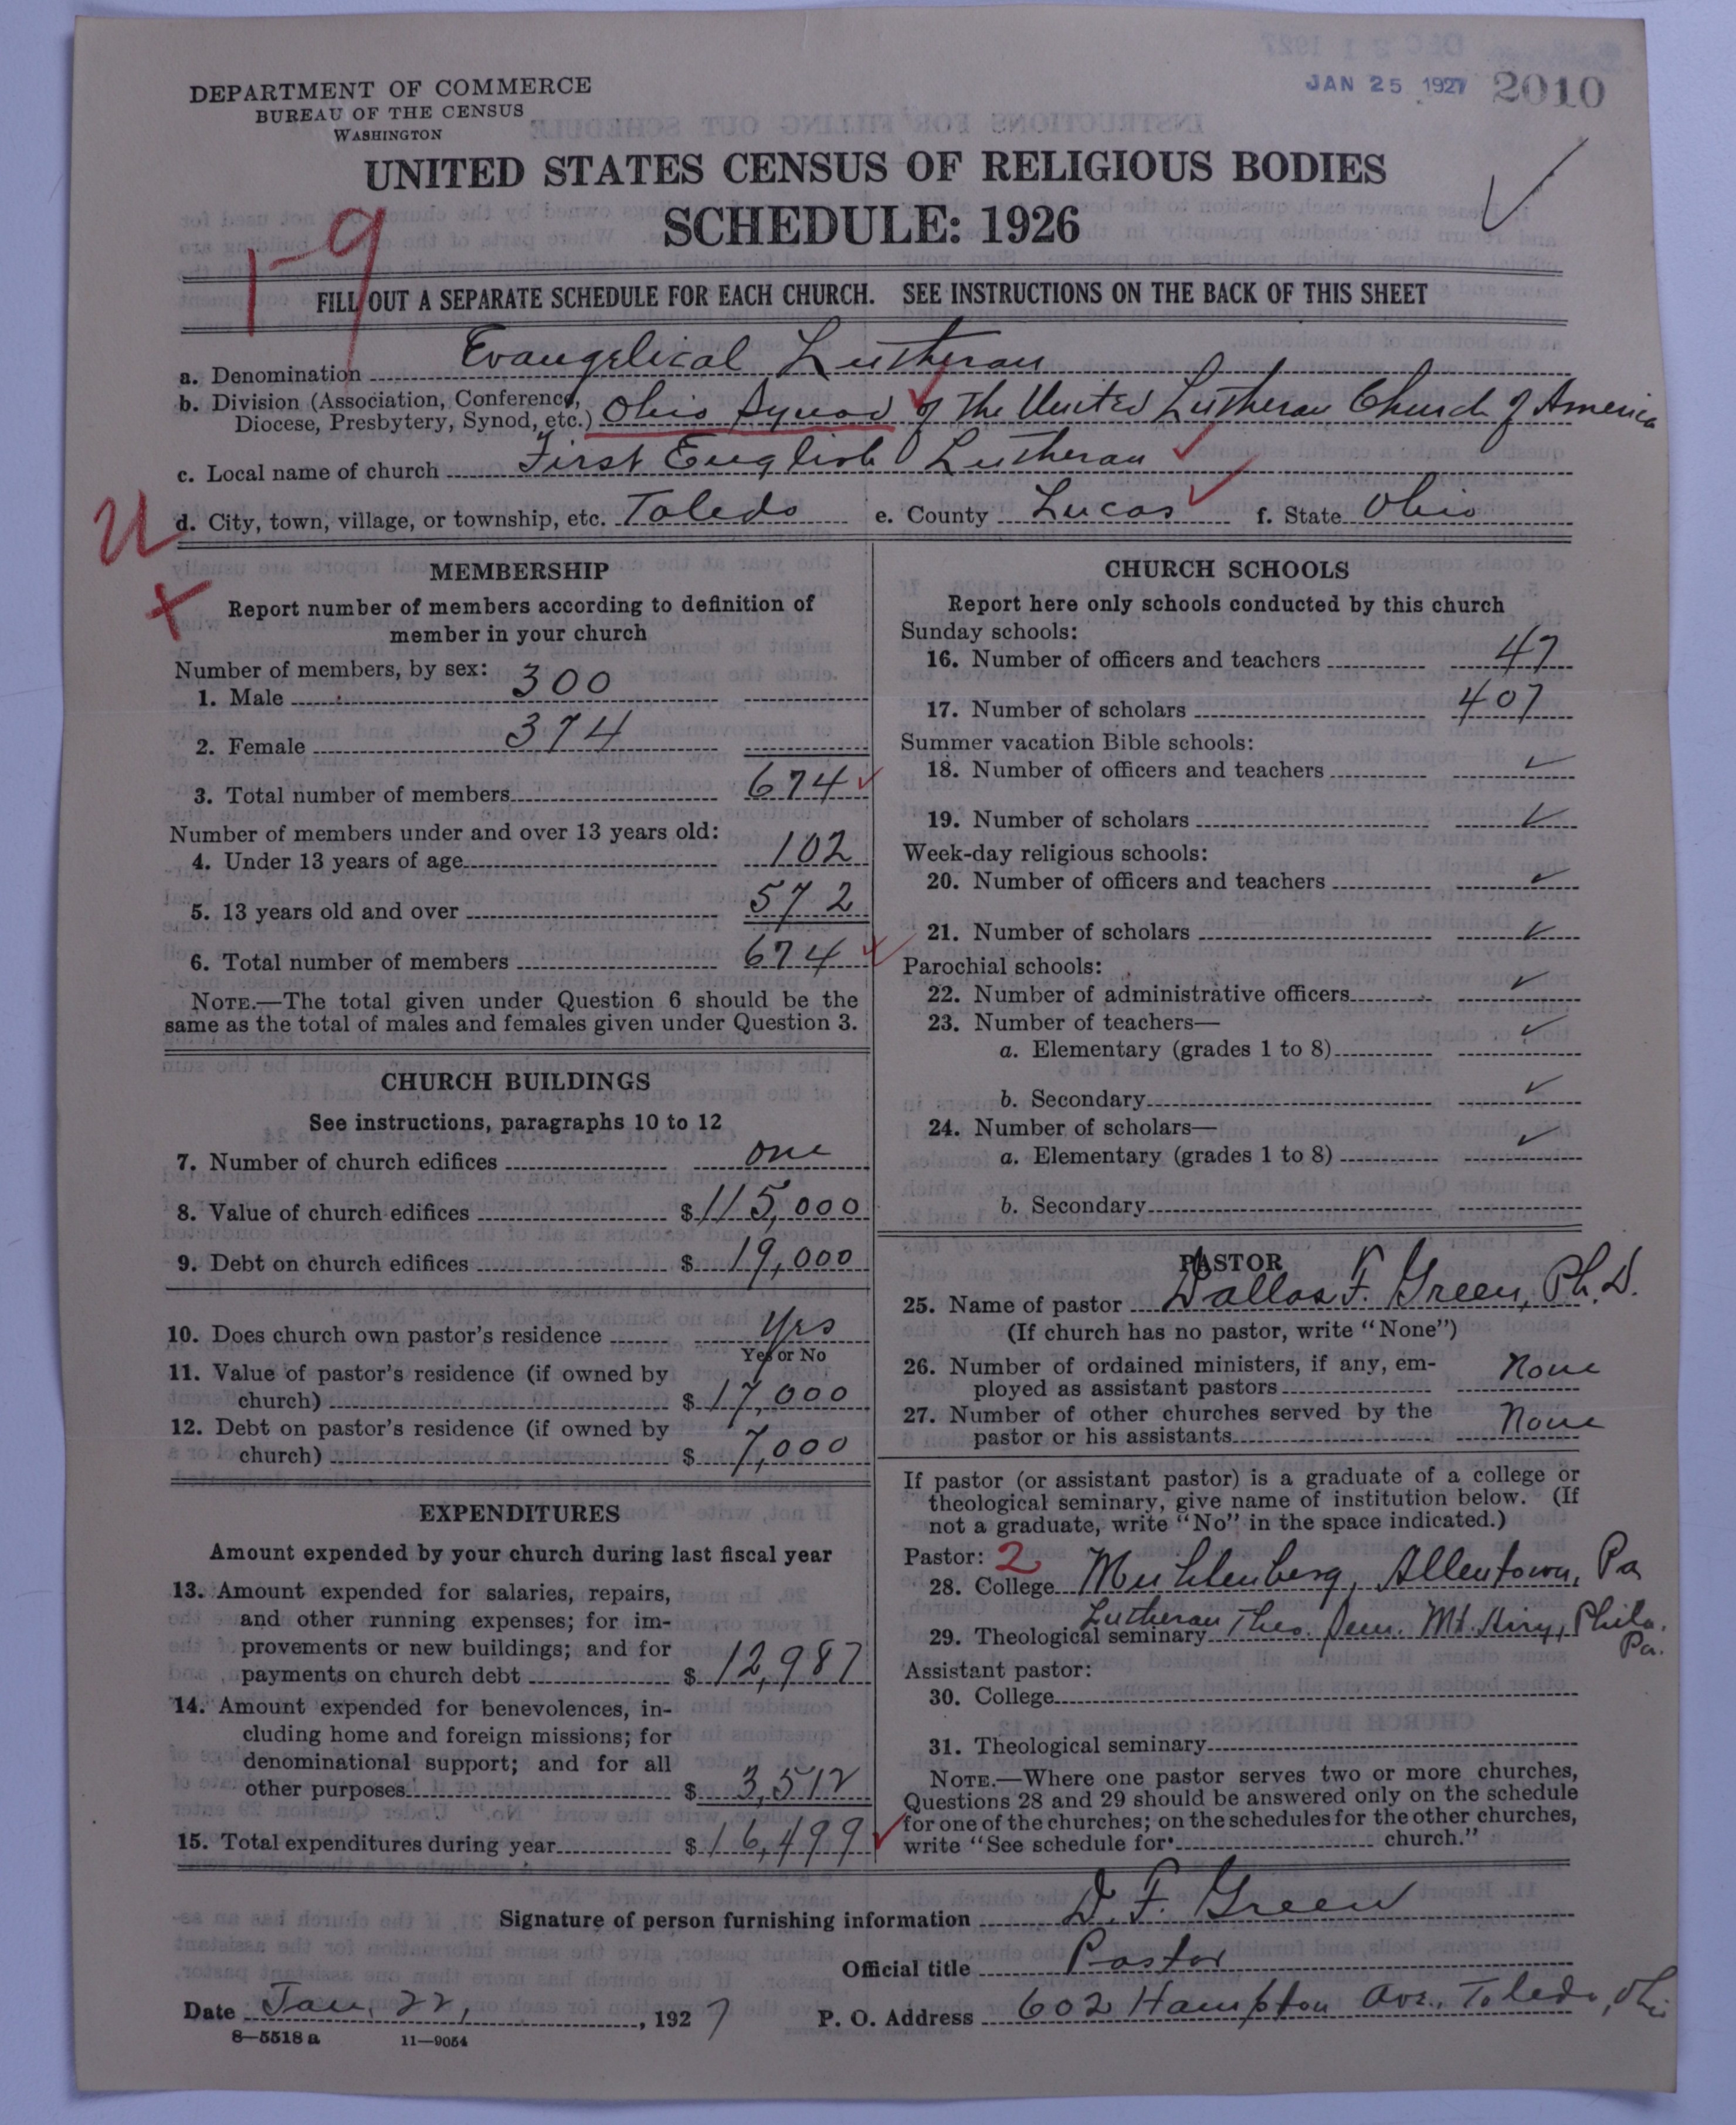 DEC 21 1927
JAN 25 1927 2010
DEPARTMENT OF COMMERCE
BUREAU OF THE CENSUS
WASHINGTON
UNITED STATES CENSUS OF RELIGIOUS BODIES
SCHEDULE: 1926
1-9
FILL OUT A SEPARATE SCHEDULE FOR EACH CHURCH. SEE INSTRUCTIONS ON THE BACK OF THIS SHEET
a. Denomination Evangelical Lutheran
b. Division (Association, Conference, Diocese, Presbytery, Synod, etc.) Ohio Synod of The United Lutheran Church of America
c. Local name of church First English Lutheran
d. City, town, village, or township, etc. Toledo e. County Lucas f. State Ohio
MEMBERSHIP
Report number of members according to definition of
member in your church
Number of members, by sex:
1. Male 300
2. Female 374
3. Total number of members 674
Number of members under and over 13 years old:
4. Under 13 years of age 102
5. 13 years old and over 572
6. Total number of members 674
NOTE.—The total given under Question 6 should be the
same as the total of males and females given under Question 3.
CHURCH BUILDINGS
See instructions, paragraphs 10 to 12
7. Number of church edifices one
8. Value of church edifices $115,000
9. Debt on church edifices $19,000
10. Does church own pastor's residence Yes
Yes or No
11. Value of pastor's residence (if owned by
church) $17,000
12. Debt on pastor's residence (if owned by
church) $7,000
EXPENDITURES
Amount expended by your church during last fiscal year
13. Amount expended for salaries, repairs,
and other running expenses; for im-
provements or new buildings; and for
payments on church debt $12,987
14. Amount expended for benevolences, in-
cluding home and foreign missions; for
denominational support; and for all
other purposes $3,512
15. Total expenditures during year $16,499
CHURCH SCHOOLS
Report here only schools conducted by this church
Sunday schools:
16. Number of officers and teachers 47
17. Number of scholars 407
Summer vacation Bible schools:
18. Number of officers and teachers
19. Number of scholars
Week-day religious schools:
20. Number of officers and teachers
21. Number of scholars
Parochial schools:
22. Number of administrative officers
23. Number of teachers—
a. Elementary (grades 1 to 8)
b. Secondary
24. Number of scholars—
a. Elementary (grades 1 to 8)
b. Secondary
PASTOR
25. Name of pastor Dallas F. Green, Ph.D.
(If church has no pastor, write "None")
26. Number of ordained ministers, if any, em-
ployed as assistant pastors None
27. Number of other churches served by the
pastor or his assistants None
If pastor (or assistant pastor) is a graduate of a college or
theological seminary, give name of institution below. (If
not a graduate, write "No" in the space indicated.)
Pastor: 2
28. College Muhlenberg, Allentown, Pa
29. Theological seminary Lutheran Theo. Sem. Mt. Airy, Phila. Pa.
Assistant pastor:
30. College
31. Theological seminary
NOTE.—Where one pastor serves two or more churches,
Questions 28 and 29 should be answered only on the schedule
for one of the churches; on the schedules for the other churches,
write "See schedule for church."
Signature of person furnishing information D. F. Green
Official title Pastor
Date Jan. 22, 1927 P. O. Address 602 Hampton Ave. Toledo, Ohio
8—5518 a 11—9054